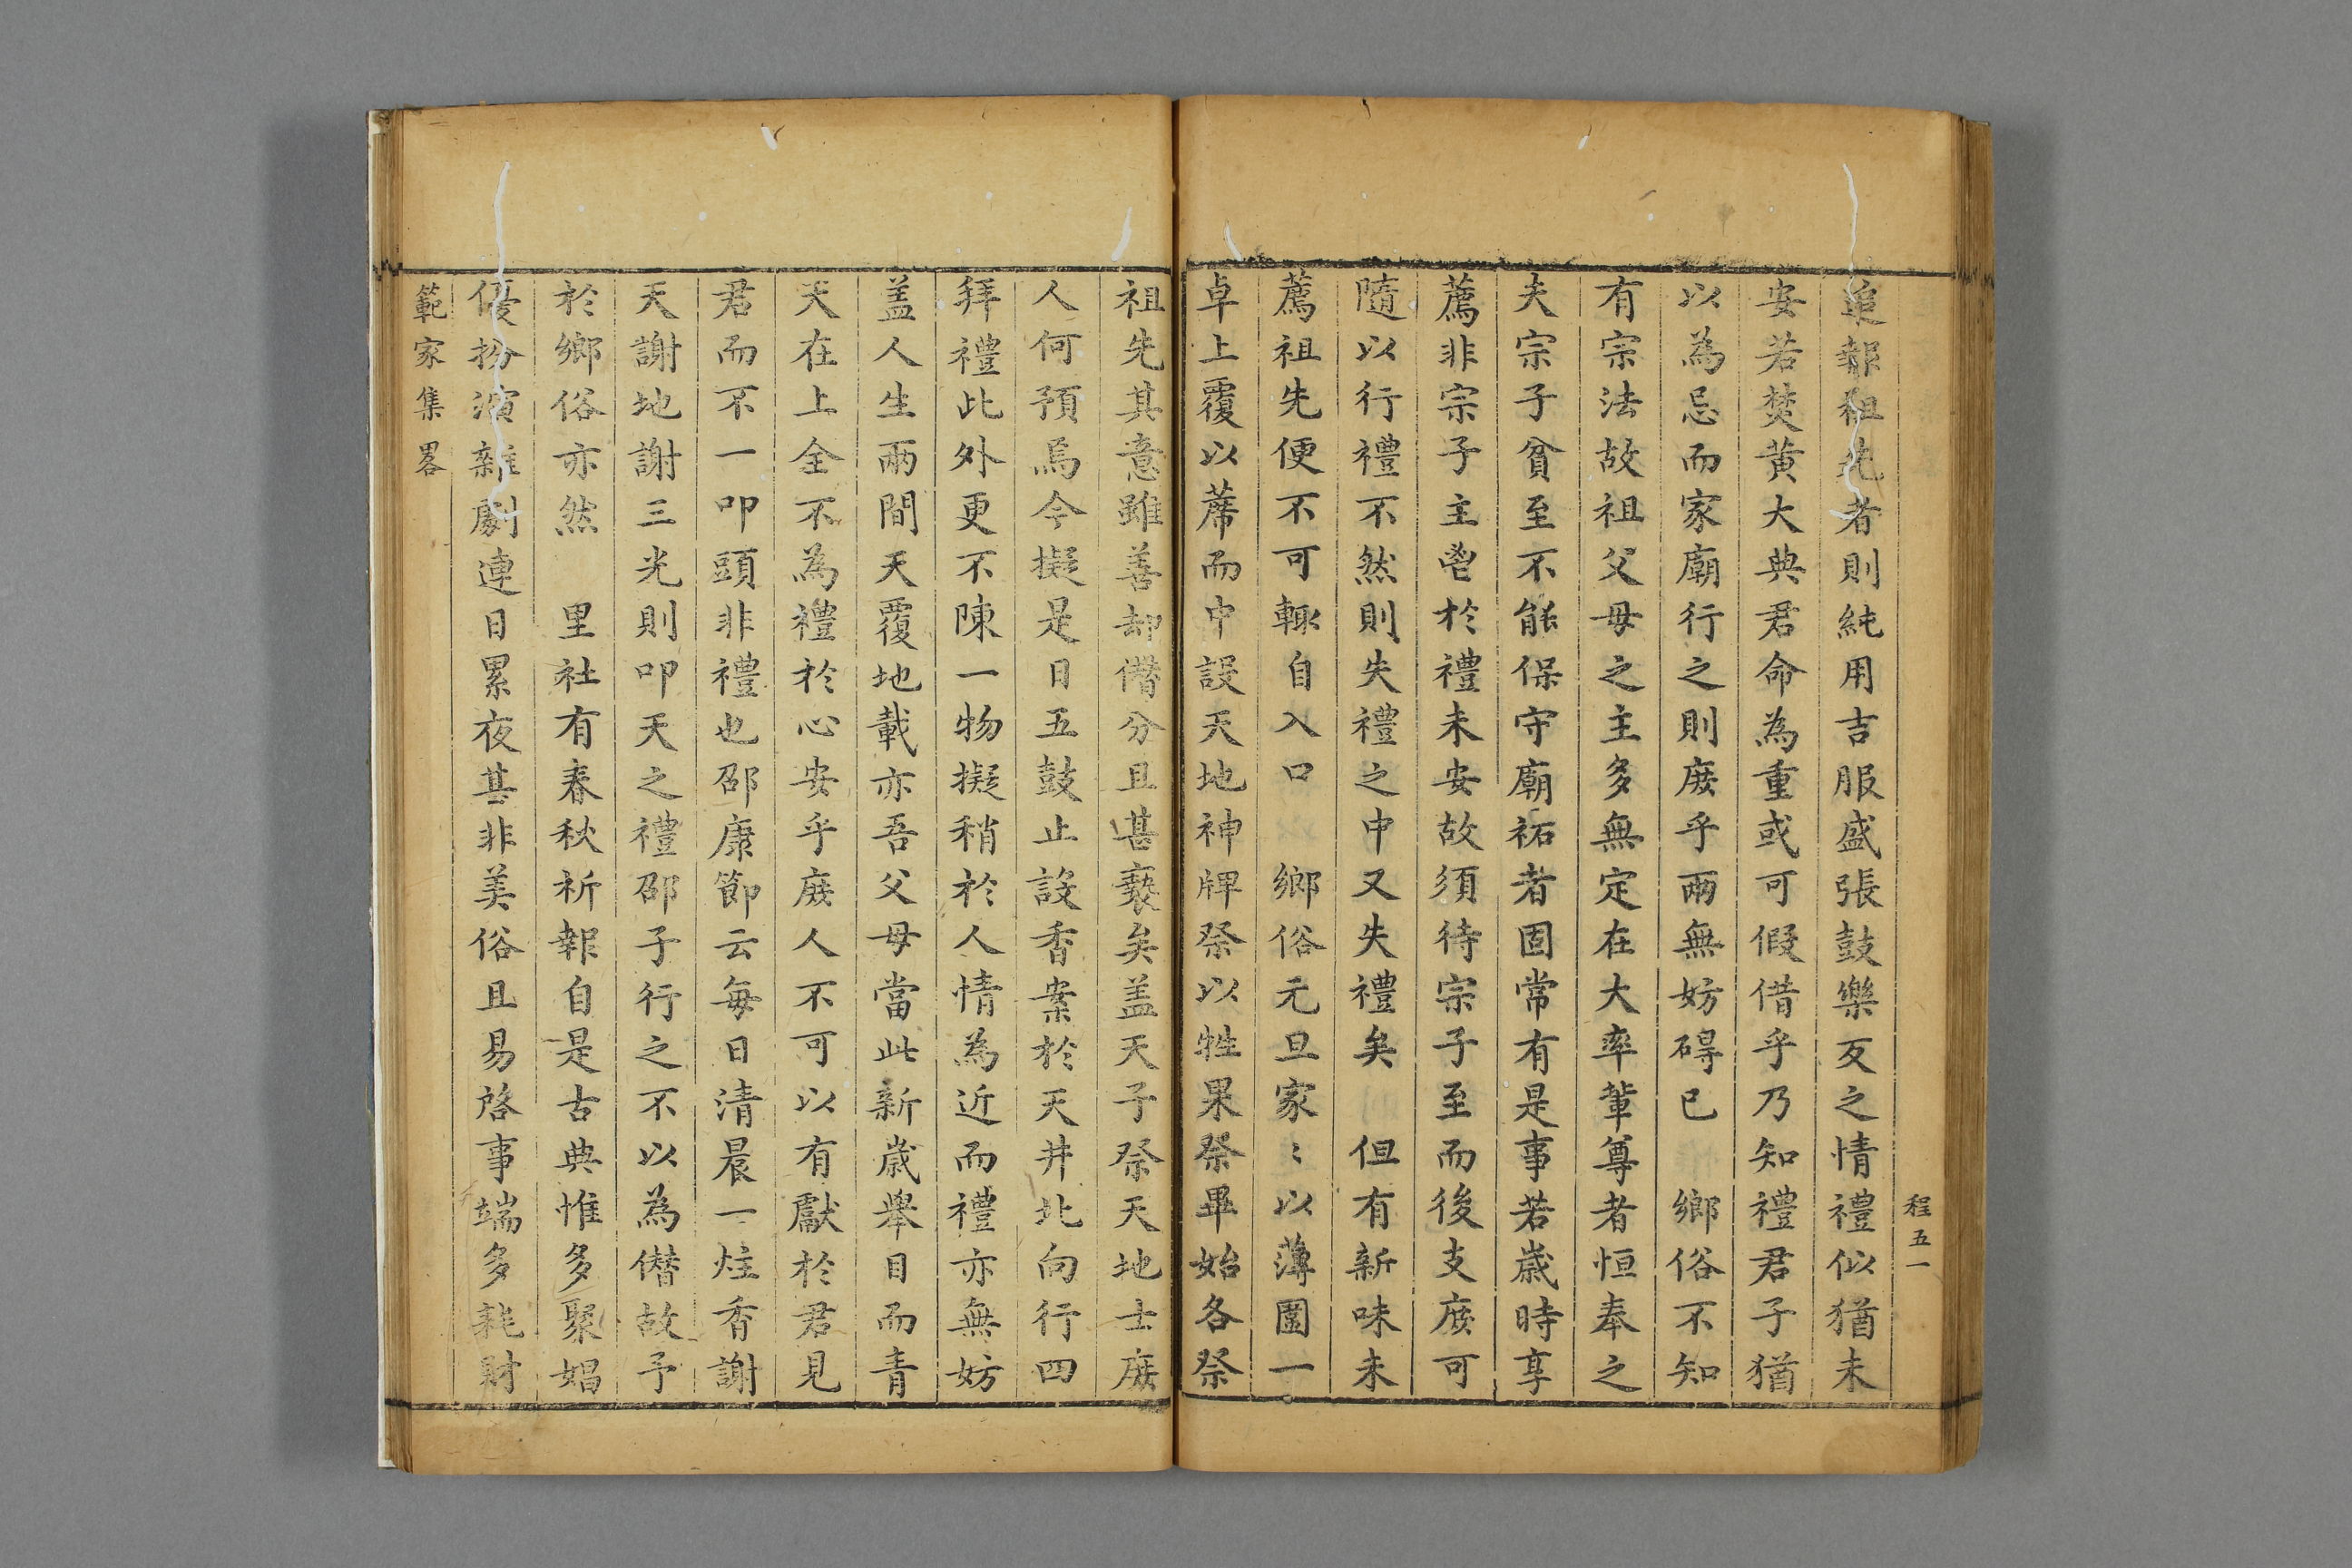 程五一
追報祖先者則純用吉服盛張鼓樂反之情禮似猶未
安若焚黃大典君命為重或可假借乎乃知禮君子猶
以為忌而家廟行之則庻乎兩無妨碍已 鄉俗不知
有宗法故祖父母之主多無定在大率軰尊者恒奉之
夫宗子貧至不能保守廟祏者固常有是事若歲時享
薦非宗子主鬯於禮未安故須待宗子至而後支庻可
隨以行禮不然則失禮之中又失禮矣 但有新味未
薦祖先便不可輙自入口 鄉俗元旦家〻以薄圗一
卓上覆以蓆而中設天地神牌祭以牲果祭畢始各祭
祖先其意雖善却僣分且甚褻矣盖天子祭天地士庻
人何預焉今擬是日五鼓止設香案於天井北向行四
拜禮此外更不陳一物擬稍於人情為近而禮亦無妨
盖人生兩間天覆地載亦吾父母當此新歲舉目而青
天在上全不為禮於心安乎庻人不可以有獻於君見
君而不一叩頭非禮也邵康節云每日清晨一炷香謝
天謝地謝三光則叩天之禮邵子行之不以為僣故予
於鄉俗亦然 里社有春秋祈報自是古典惟多聚娼
優扮演雜劇連日累夜甚非美俗且易啓事端多耗財
範家集畧